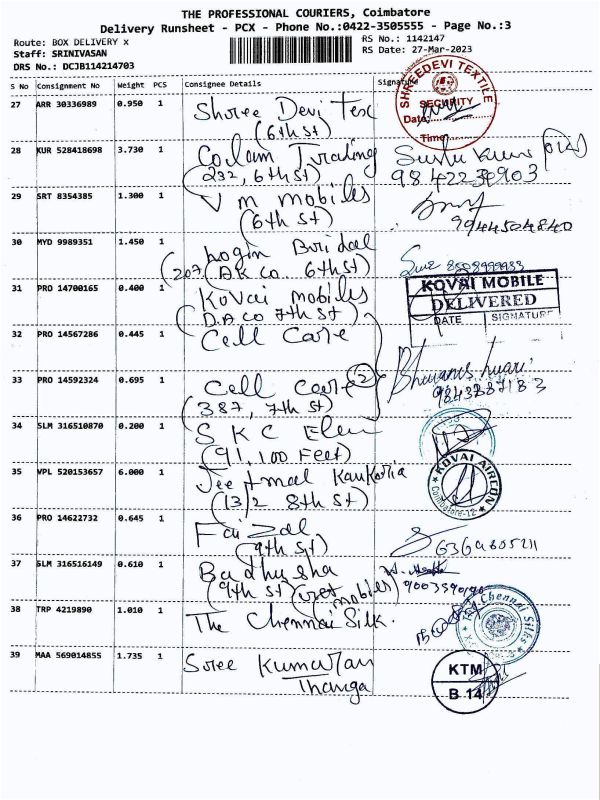 THE PROFESSIONAL COURIERS, Coimbatore
Delivery Runsheet - PCX - Phone No.:0422-3505555 - Page No.:3
Route: BOX DELIVERY x
RS No.: 1142147
Staff: SRINIVASAN
RS Date: 27-Mar-2023
DRS No.: DCJB114214703
S No Consignment No Weight PCS Consignee Details Signature
27 ARR 30336989 0.950 1 Shree Devi Tex
(6th St)
SHREEDEVI TEXTILE
SECURITY
Date:
Time
28 KUR 528418698 3.730 1 Trading
(232, 6th St)
29 SRT 8354385 1.300 1 V m mobiles
(6th St)
9944504840
30 MYD 9989351 1.450 1 Login Bridal
(207, 6th St)
31 PRO 14700165 0.400 1 Kovai mobiles
7th St)
KOVAI MOBILE
DELIVERED
DATE SIGNATURE
32 PRO 14567286 0.445 1 Cell Care
33 PRO 14592324 0.695 1 Cell Care 2
(387, 7th St)
34 SLM 316510870 0.200 1 S K C
(91, 100 Feet)
35 VPL 520153657 6.000 1
(13/2 8th St)
KOVAI AIRCON
Coimbatore-12
36 PRO 14622732 0.645 1 Faizal
(9th St)
37 SLM 316516149 0.610 1 Badhusha
(9th St) mobiles)
38 TRP 4219890 1.010 1 The Chennai Silk.
The Chennai Silks
39 MAA 569014855 1.735 1 Sree Kumaran
Thanga
KTM
B 14